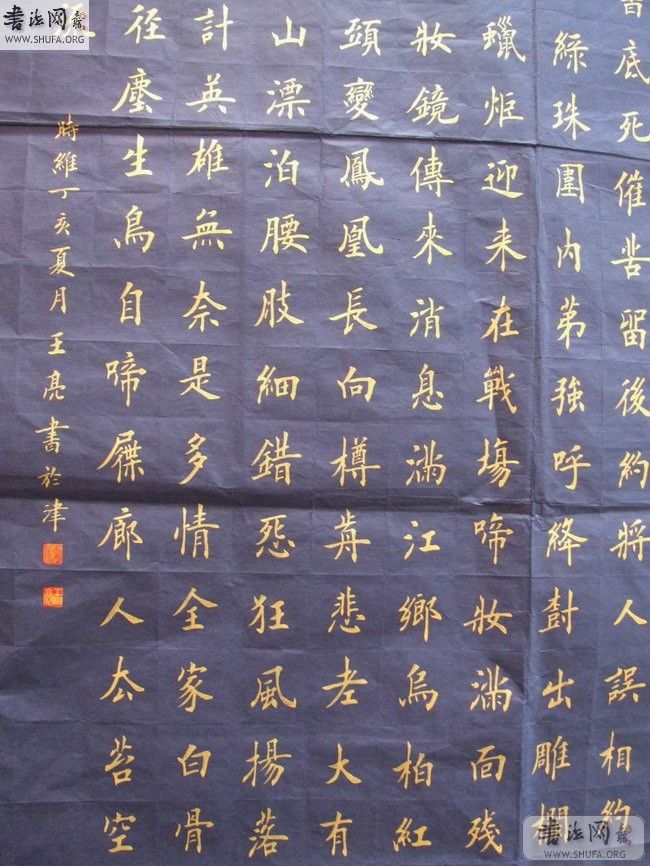 書底死催苦留後約將人誤相約
綠珠圍內苐強呼絳樹出雕欄
蠟炬迎来在戰場啼妝滿面残
妝鏡傳來消息滿江鄉烏柏紅
頭變鳳凰長向樽前悲老大有
山漂泊腰肢細錯怨狂風揚落
計英雄無奈是多情全家白骨
徑塵生鳥自啼屧廊人去苔空
時維丁亥夏月王亮書於津
書法网
WWW.SHUFA.ORG
書法网
WWW.SHUFA.ORG